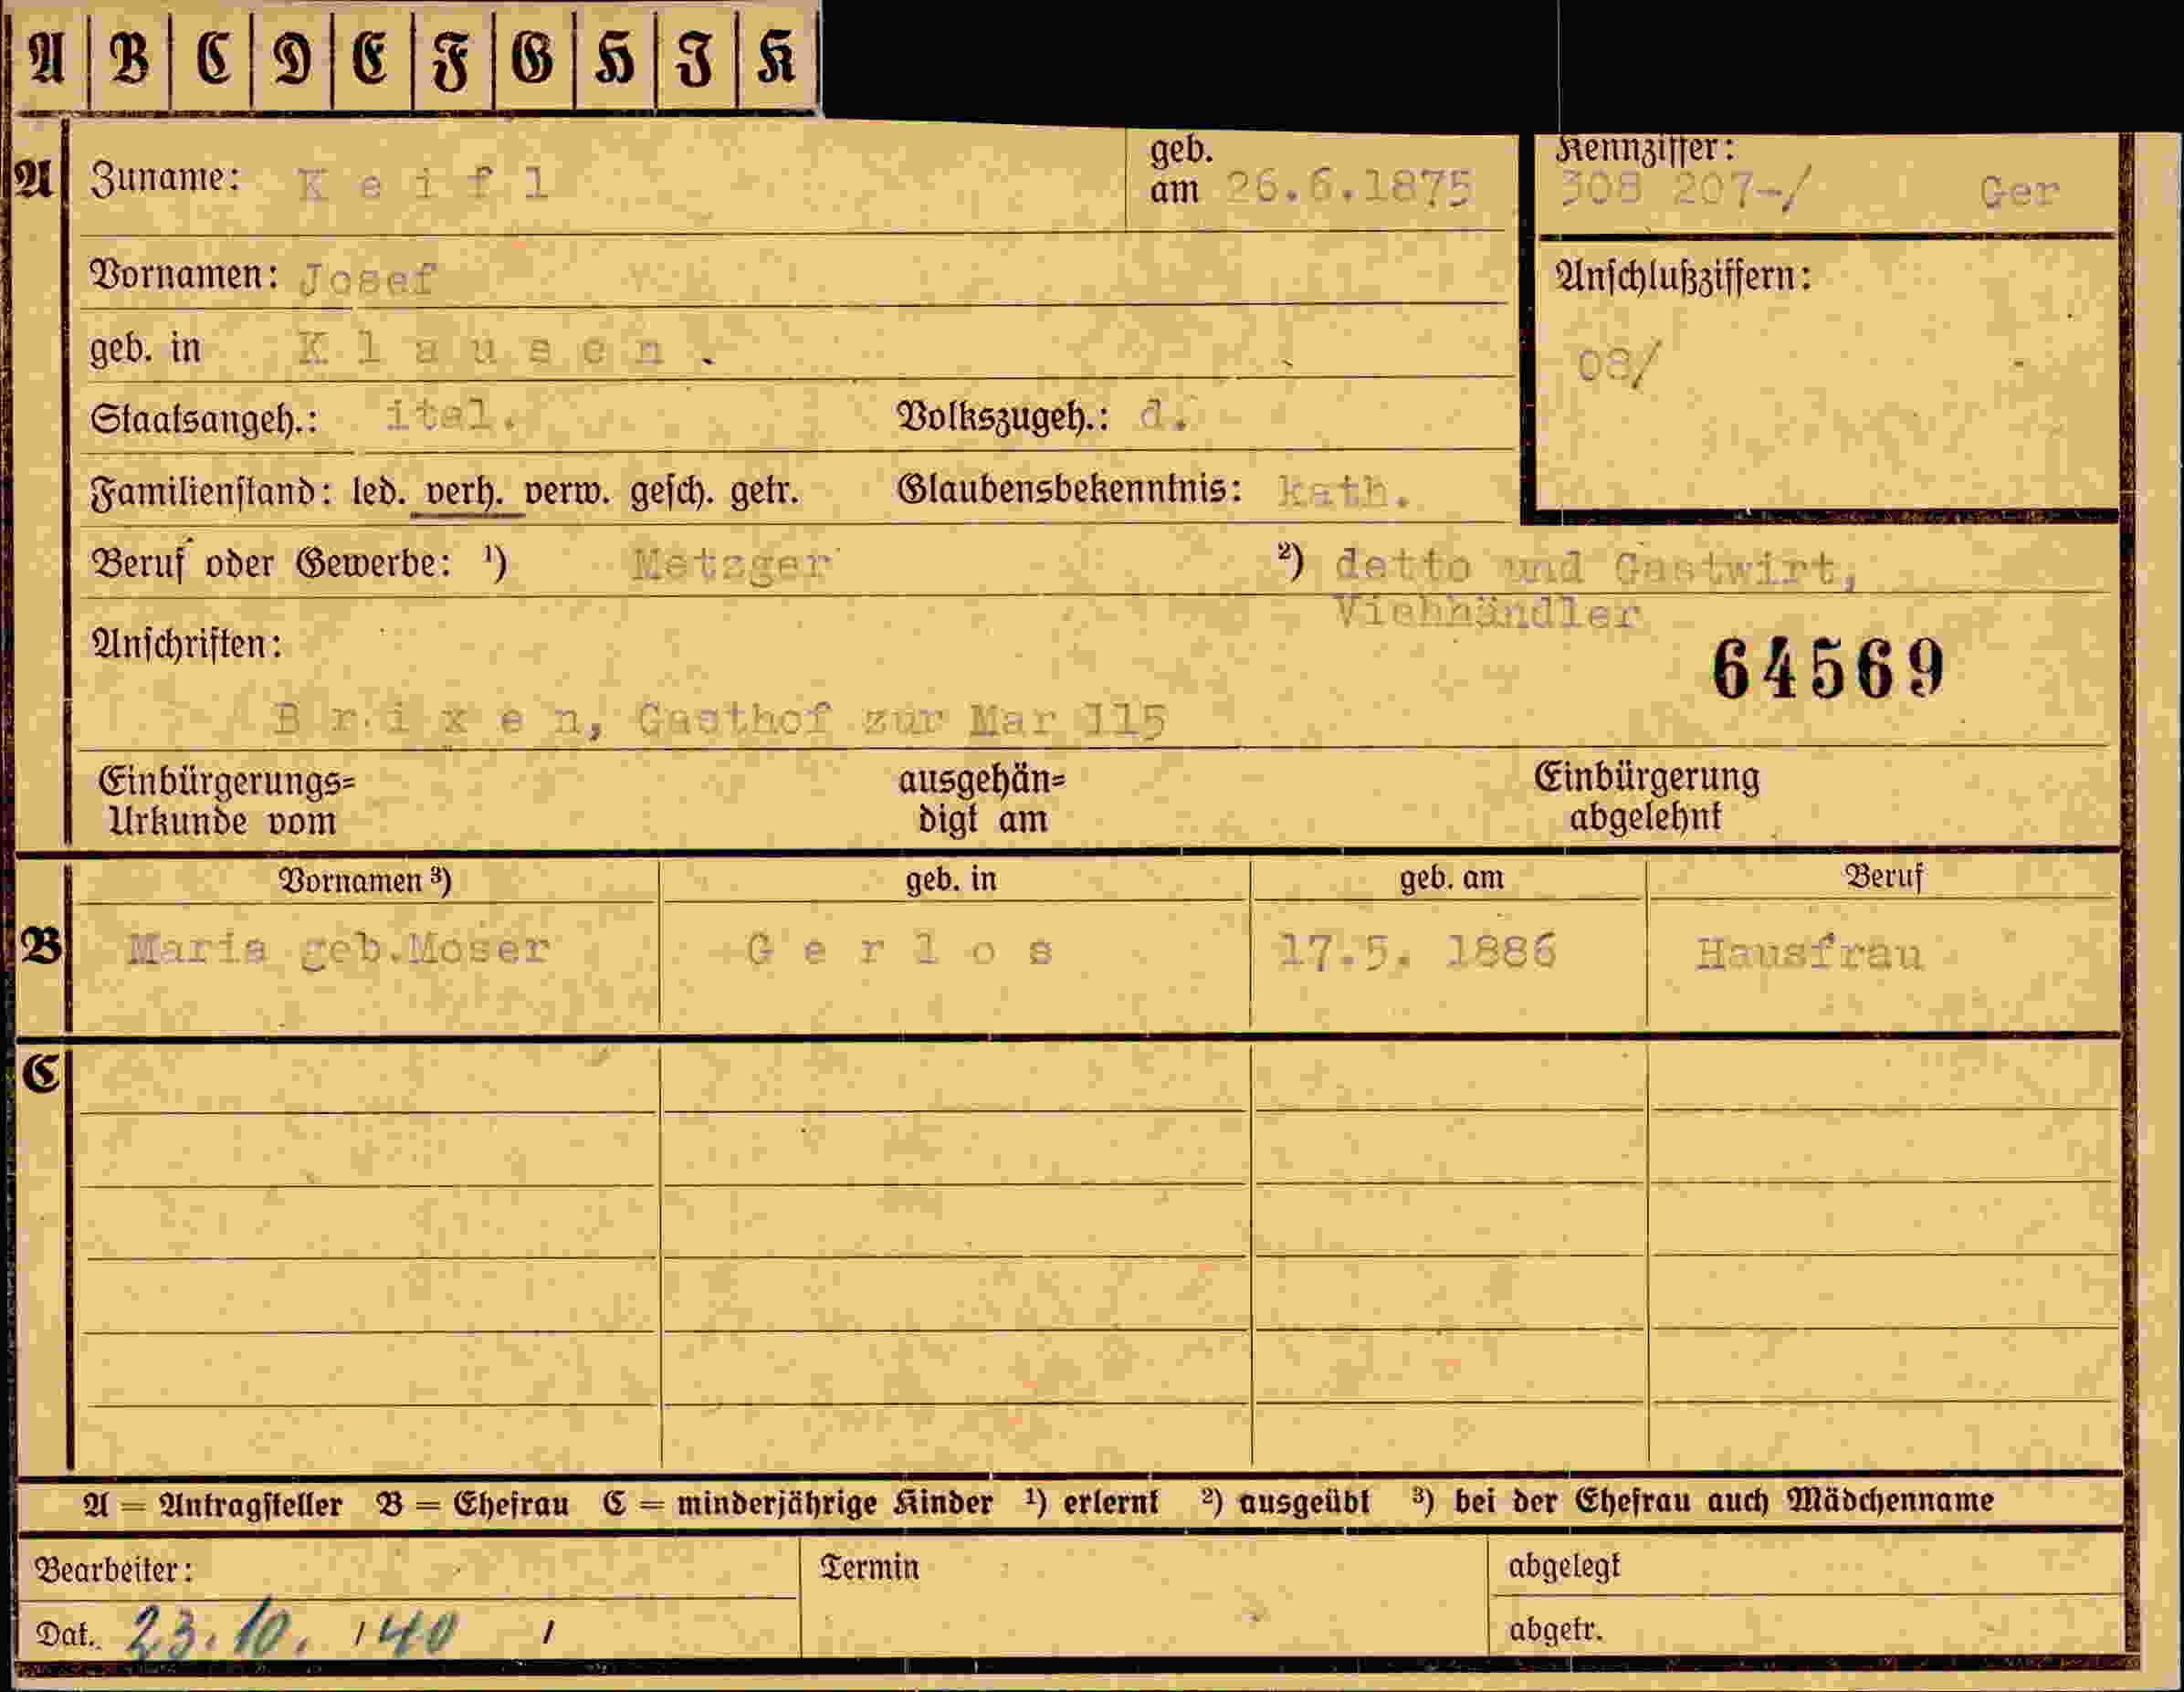 A B C D E F G H I K
A Zuname: K e i f l geb. am 26.6.1875 Kennziffer: 308 207-/ Ger
Vornamen: Josef Anschlußziffern:
geb. in K l a u s e n . 08/
Staatsangeh.: ital. Volkszugeh.: d.
Familienstand: led. verh. verw. gesch. getr. Glaubensbekenntnis: kath.
Beruf oder Gewerbe: ¹) Metzger ²) detto und Gastwirt,
Viehhändler
Anschriften: 64569
B r i x e n, Gasthof zur Mar 115
Einbürgerungs= ausgehän= Einbürgerung
Urkunde vom digt am abgelehnt
Vornamen ³) geb. in geb. am Beruf
B Maria geb.Moser G e r l o s 17.5. 1886 Hausfrau
C
A = Antragsteller B = Ehefrau C = minderjährige Kinder ¹) erlernt ²) ausgeübt ³) bei der Ehefrau auch Mädchenname
Bearbeiter: Termin abgelegt
Dat. 23.10. / 40 / abgetr.